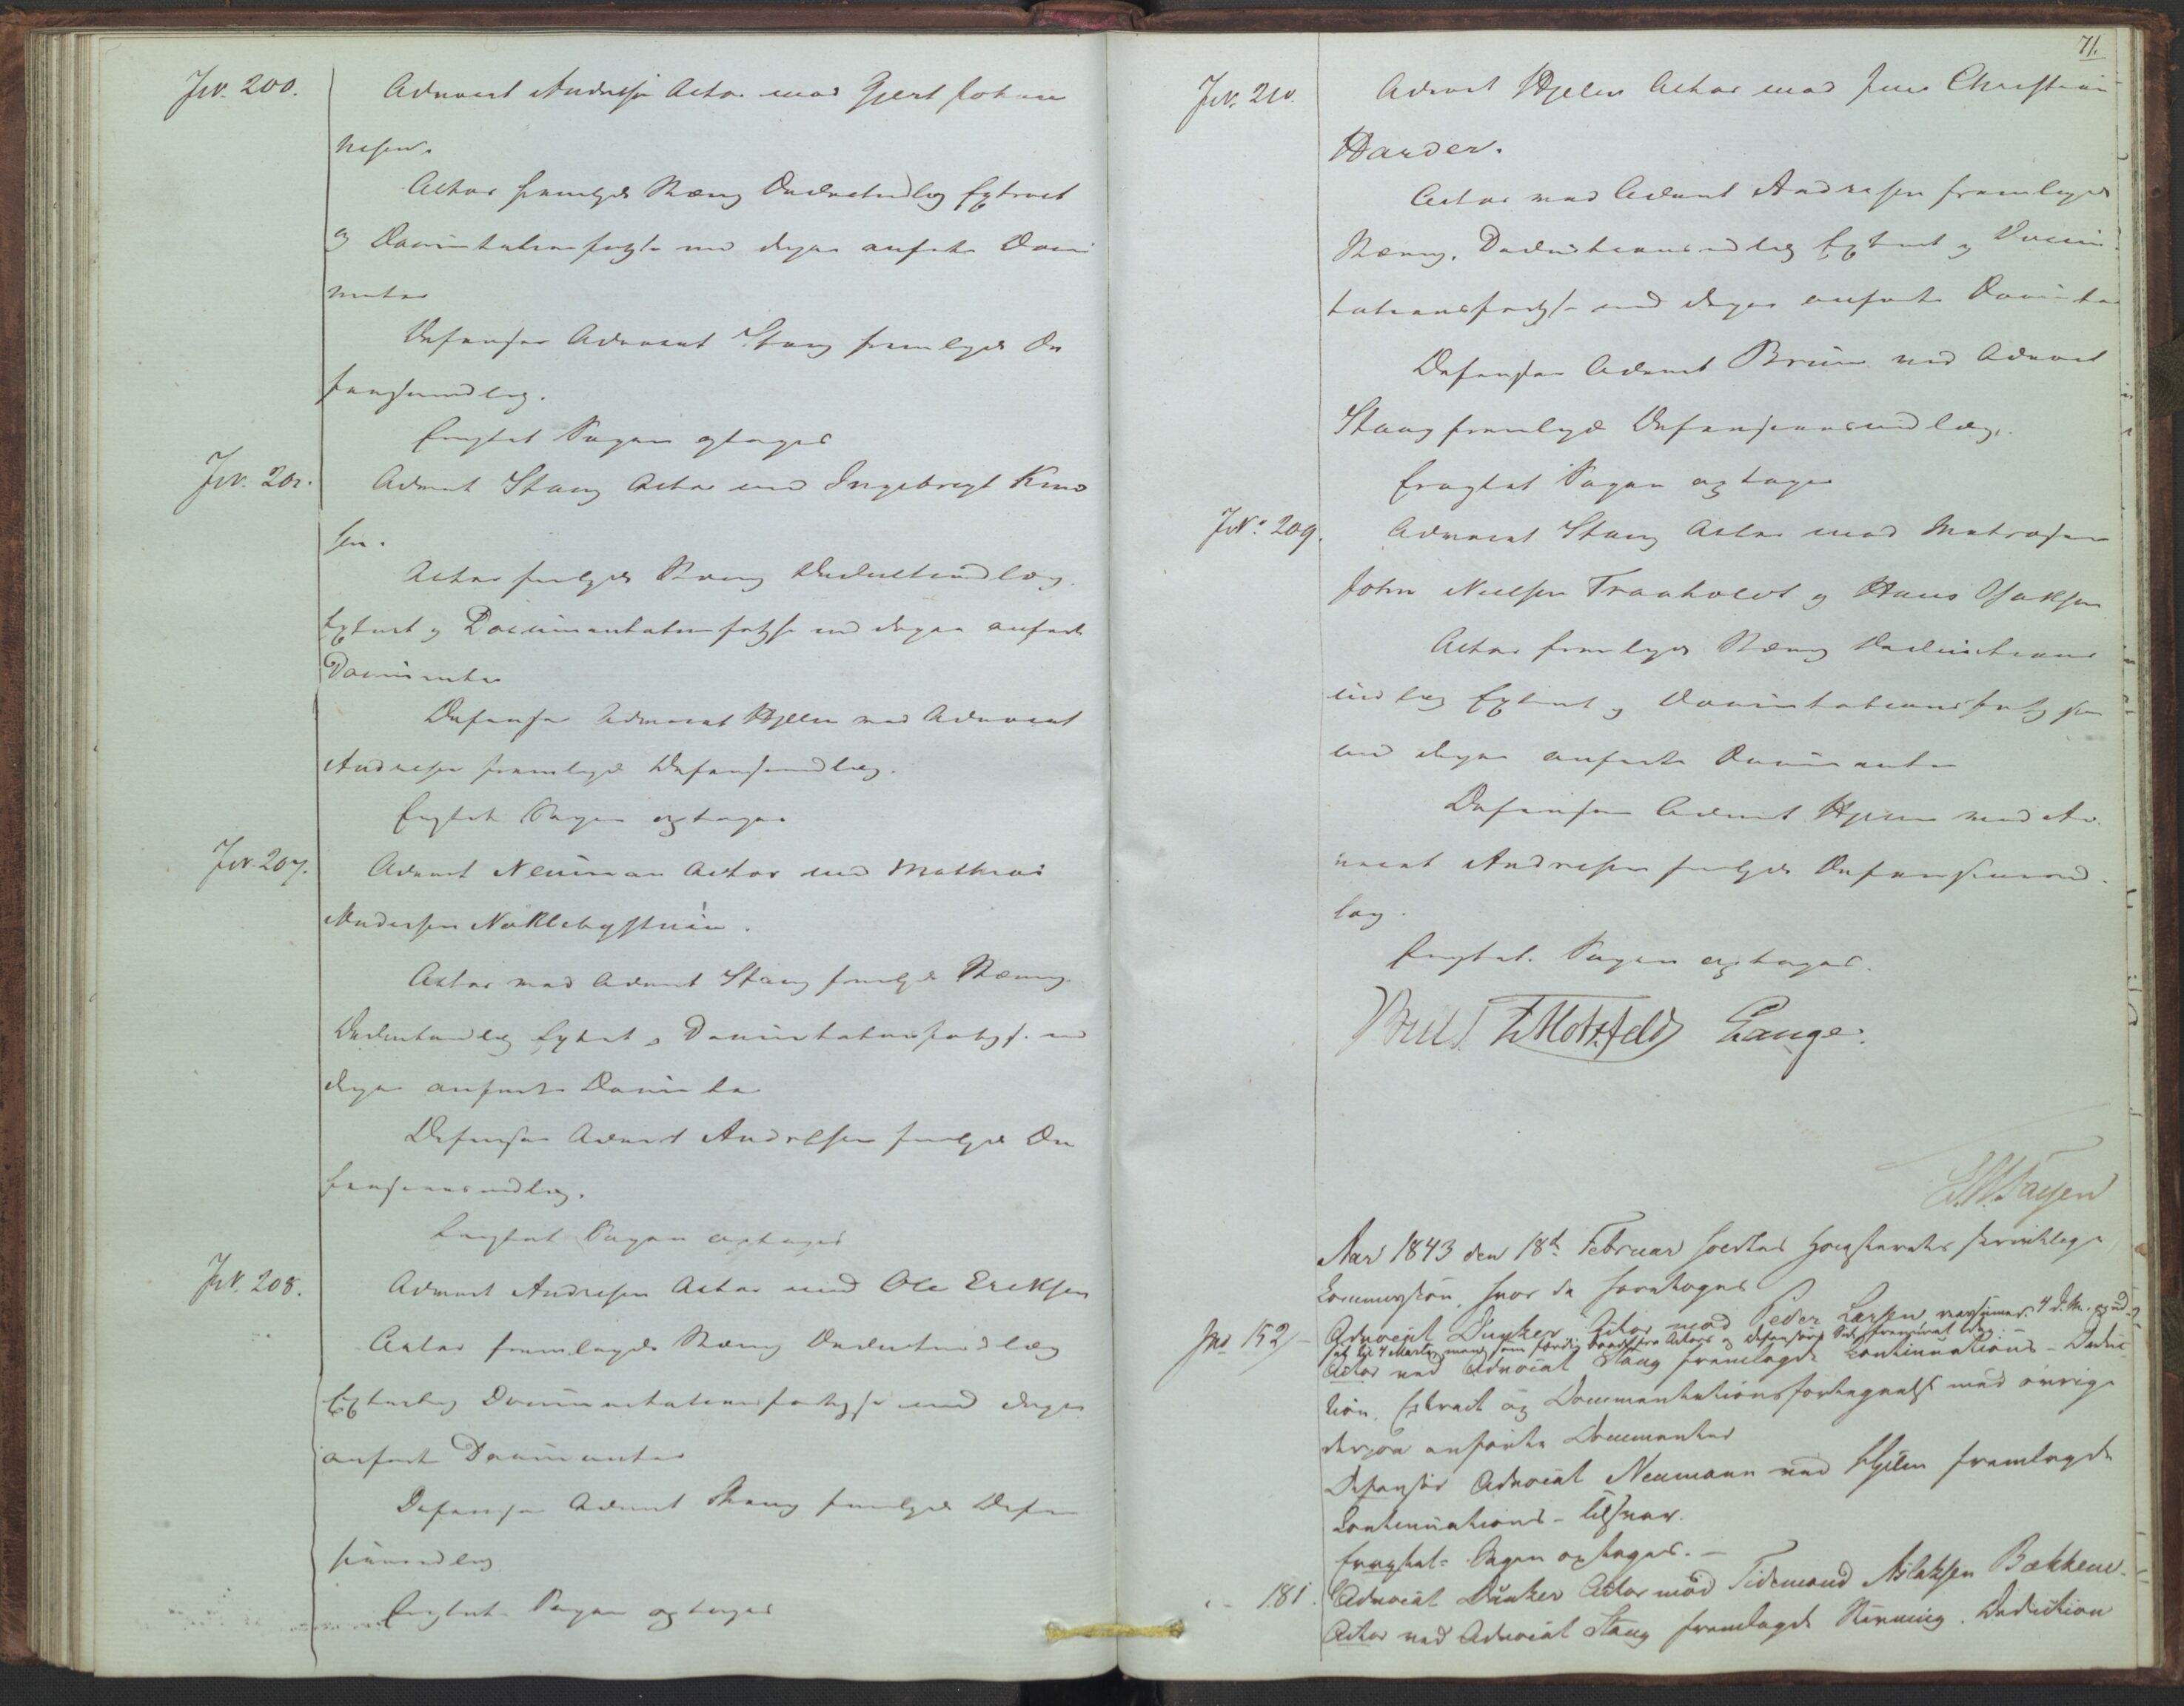 JN. 200.
Advocat Andresen Actor mod Gjert Johan
nesen.
Actor fremlagde Stævng Deductindlæg Extract
og Documentationsfortgs med deri anførte Docu
menter
Defensor Advocat Stang fremlagde De
fensindlæg.
Eragtet Sagen optages
JN. 201.
Advocat Stang Actor mod Ingebrigt Knud
sen.
Actor fremlagde Stævng Deductindlæg
Extract og Documentationsfortgs med anførte
Documenter
Defensor Advocat Hjelm ved Advocat
Andresen fremlagde Defensindlæg.
Eragtet Sagen optages
JN. 207.
Advocat Neuman Actor mod Mathias
Andersen Naklebystuen.
Actor ved Advocat Stang fremlagde Stævng
Deductindlæg Extract og Documentationsfortgs. med
anførte Documenter
Defensor Advocat Andresen fremlagde De
fensionsindlæg.
Eragtet Sagen optages
JN. 208.
Advocat Andresen Actor mod Ole Eriksen
Actor fremlagde Stævng Deductindlæg
Extract og Documentationsfortgse med
anførte Documenter
Defensor Advocat Stang fremlagde Defen
sionsindlæg
Eragtet Sagen optages
71.
JN. 210.
Advocat Hjelm Actor mod Jens Christian
Harder.
Actor ved Advocat Andresen fremlagde
Stævng, Deductionsindlæg Extract og Documen
tationsfortgse med anførte Documenter
Defensor Advocat Bruun ved Advocat
Stang fremlagde Defensionsindlæg.
Eragtet Sagen optages
JN. 209.
Advocat Stang Actor mod Matroserne
John Nielsen Traaholdt og Hans Isaksen
Actor fremlagde Stævng Deductions
indlæg Extract og Documentationsfortgse
med anførte Documenter
Defensor Advocat Hjelm ved Ad
vocat Andresen fremlagde Defensionsind
læg.
Eragtet. Sagen optages.
Bull. Motzfeldt Lange.
Fayen
Aar 1843 den 18de Februar holdtes Høiesterets skriftlige
Commission, hvor da foretoges
JNo 152/
Advocat Dunker Actor mod Peder Larsen
4 Marts som færdig baade fra Actors og Defensors Side
Actor ved Advocat Stang fremlagde Continuations-Deduc
tion, Extract og Documentationsfortegnelse med øvrige
derpaa anførte Documenter
Defensor Advocat Neumann ved Hjelm fremlagde
Continuations-Tilsvar.
Eragtet: Sagen optages. —
181.
Advocat Dunker Actor mod Tidemand Aslaksen Bækkene.
Actor ved Advocat Stang fremlagde Stævning, Deduction